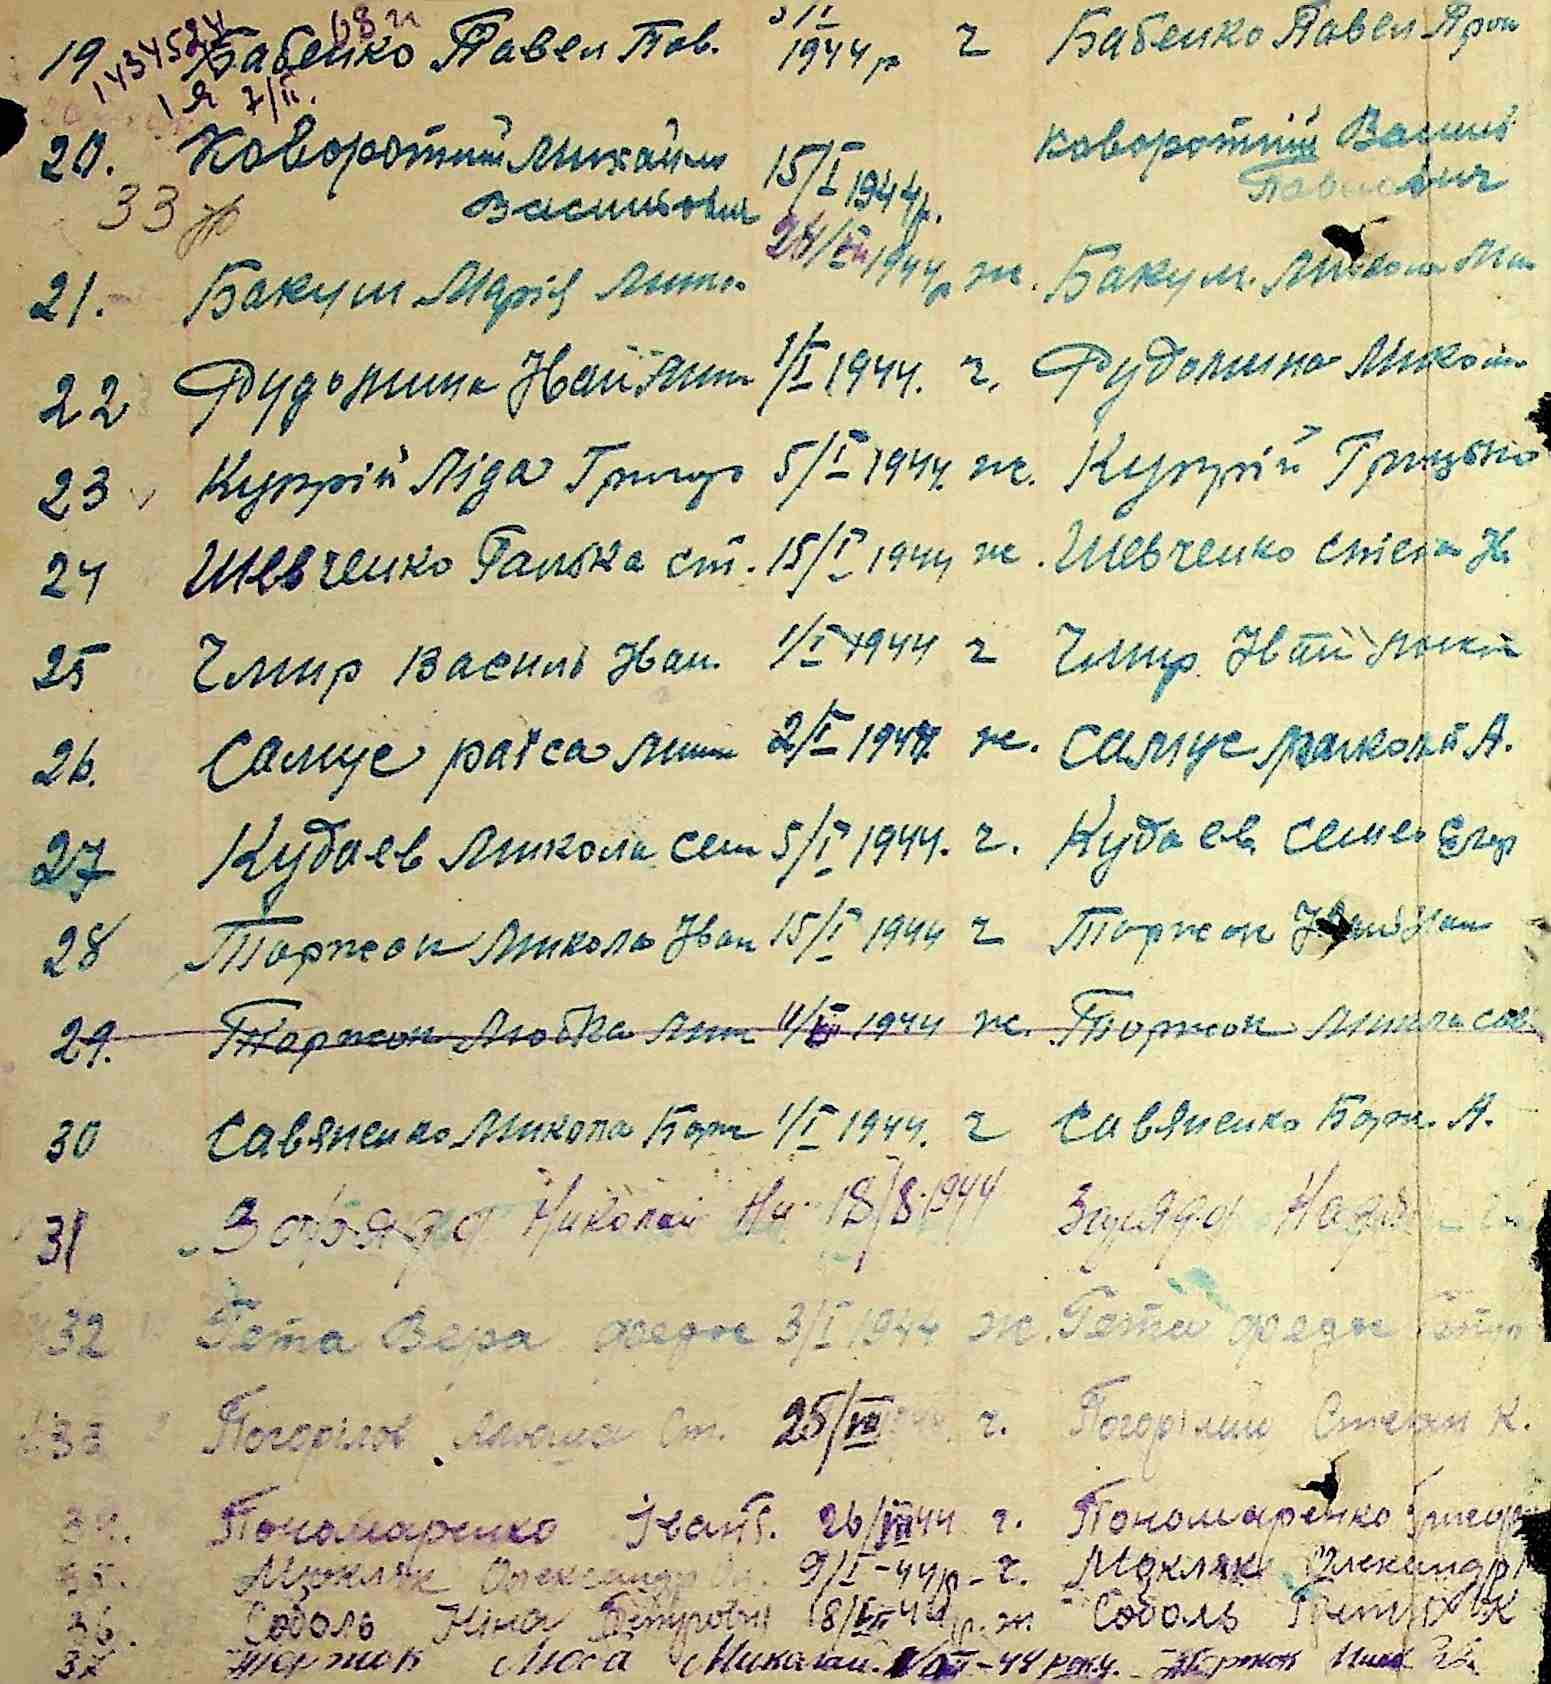 68 и
19 Бабенко Павел Пав. 5/I 1944 р ч Бабенко Павел
1434524
1 Я 7/II.
20. Коворотній Михайло 15/I 1944р. Коворотній Василь
33 Васильович Павлович
21. Бакум Марія Мик. 24/VII 1944р ж. Бакум. Микола
22 Фудолина Іван Мик 1/I 1944. ч. Фудолина Микола
23 Купрій Ліда Григор 5/I 1944. ж. Купрій Грицько
24 Шевченко Галька ст. 15/I 1944 ж. Шевченко степан
25 Чмир Василь Іван. 1/I 1944 ч Чмир Іван
26. Самус раїса Мик 2/I 1944. ж. Самус Миколай А.
27 Кудаев Микола Сем 5/I 1944. ч. Кудаев Семен Егор
28 Торжок Микола Іван 15/I 1944 ч Торжок Іван
29. Торжок Любка Мик 1944 ж. Торжок Микола
30 Савяненко Микола Бор 1/I 1944. ч Савяненко Бор. А.
31 Николай 18/8-1944 Надя
32 Гета Вера федос 3/I 1944 ж. Гета федос
33 Погорілов Альоша Ст. 25/VII 1944 ч. Погорілий Степан К.
34. Пономаренко Іван 26/VII 44 ч. Пономаренко Григор
35. Мокляк Олександр 9/I-44р-ч. Мокляк Олександр
36. Соболь Ніна Петровна 18/ 44р. ж. Соболь Петро К
37 Торжок Люба Миколаї. -44 року. Торжок